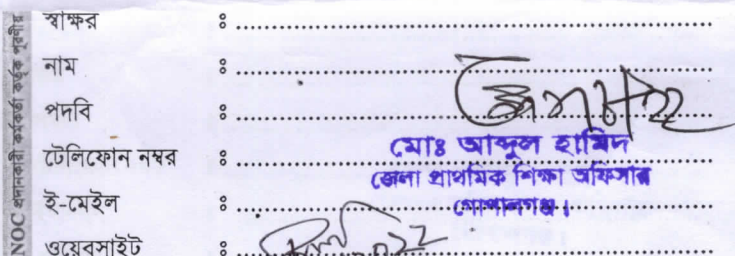 NOC প্রদানকারী কর্মকর্তা কর্তৃক পূরণীয়
স্বাক্ষর ঃ
নাম ঃ
পদবি ঃ
টেলিফোন নম্বর ঃ
ই-মেইল ঃ
ওয়েবসাইট ঃ
মোঃ আব্দুল হামিদ
জেলা প্রাথমিক শিক্ষা অফিসার
গোপালগঞ্জ।